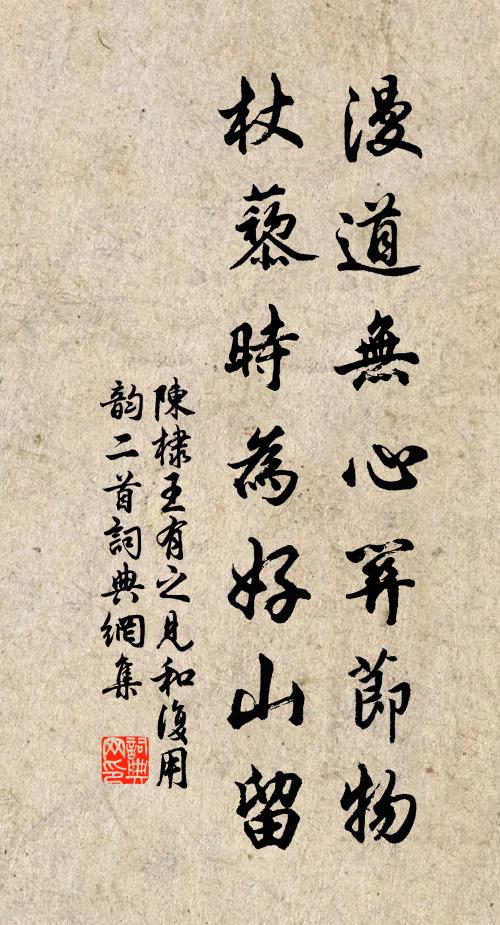 漫道無心笄節物
杖藜時為好山留
陳棣王有之見和復用
韵二首詞典網集
詞典網印